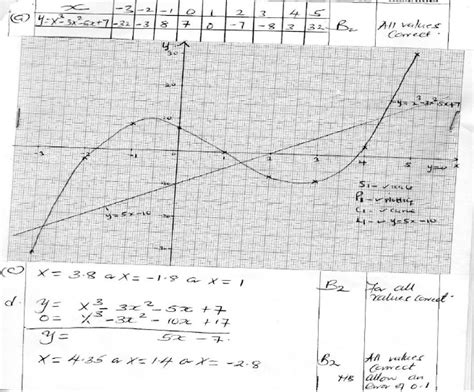 (a) x -3 -2 -1 0 1 2 3 4 5
y=x³-3x²-5x+7 -32 -3 8 7 0 -7 -8 3 32 B₂ All values
correct.
y
30
y=x³-3x²-5x+7
10
-3 -1 2 3 4 5 x
y=0
S₁ - ✓ scale
P₁ - ✓ plotting
C₁ - ✓ curve
L₁ - ✓ y=5x-10
y=5x-10
(c) x = 3.8 or x = -1.8 or x = 1 B₂ for all
values correct
d. y = x³ - 3x² - 5x + 7
0 = x³ - 3x² - 10x + 17
y = 5x - 7.
x = 4.35 or x = 1.4 or x = -2.8 B₂ All values
correct
allow an
error of 0.1